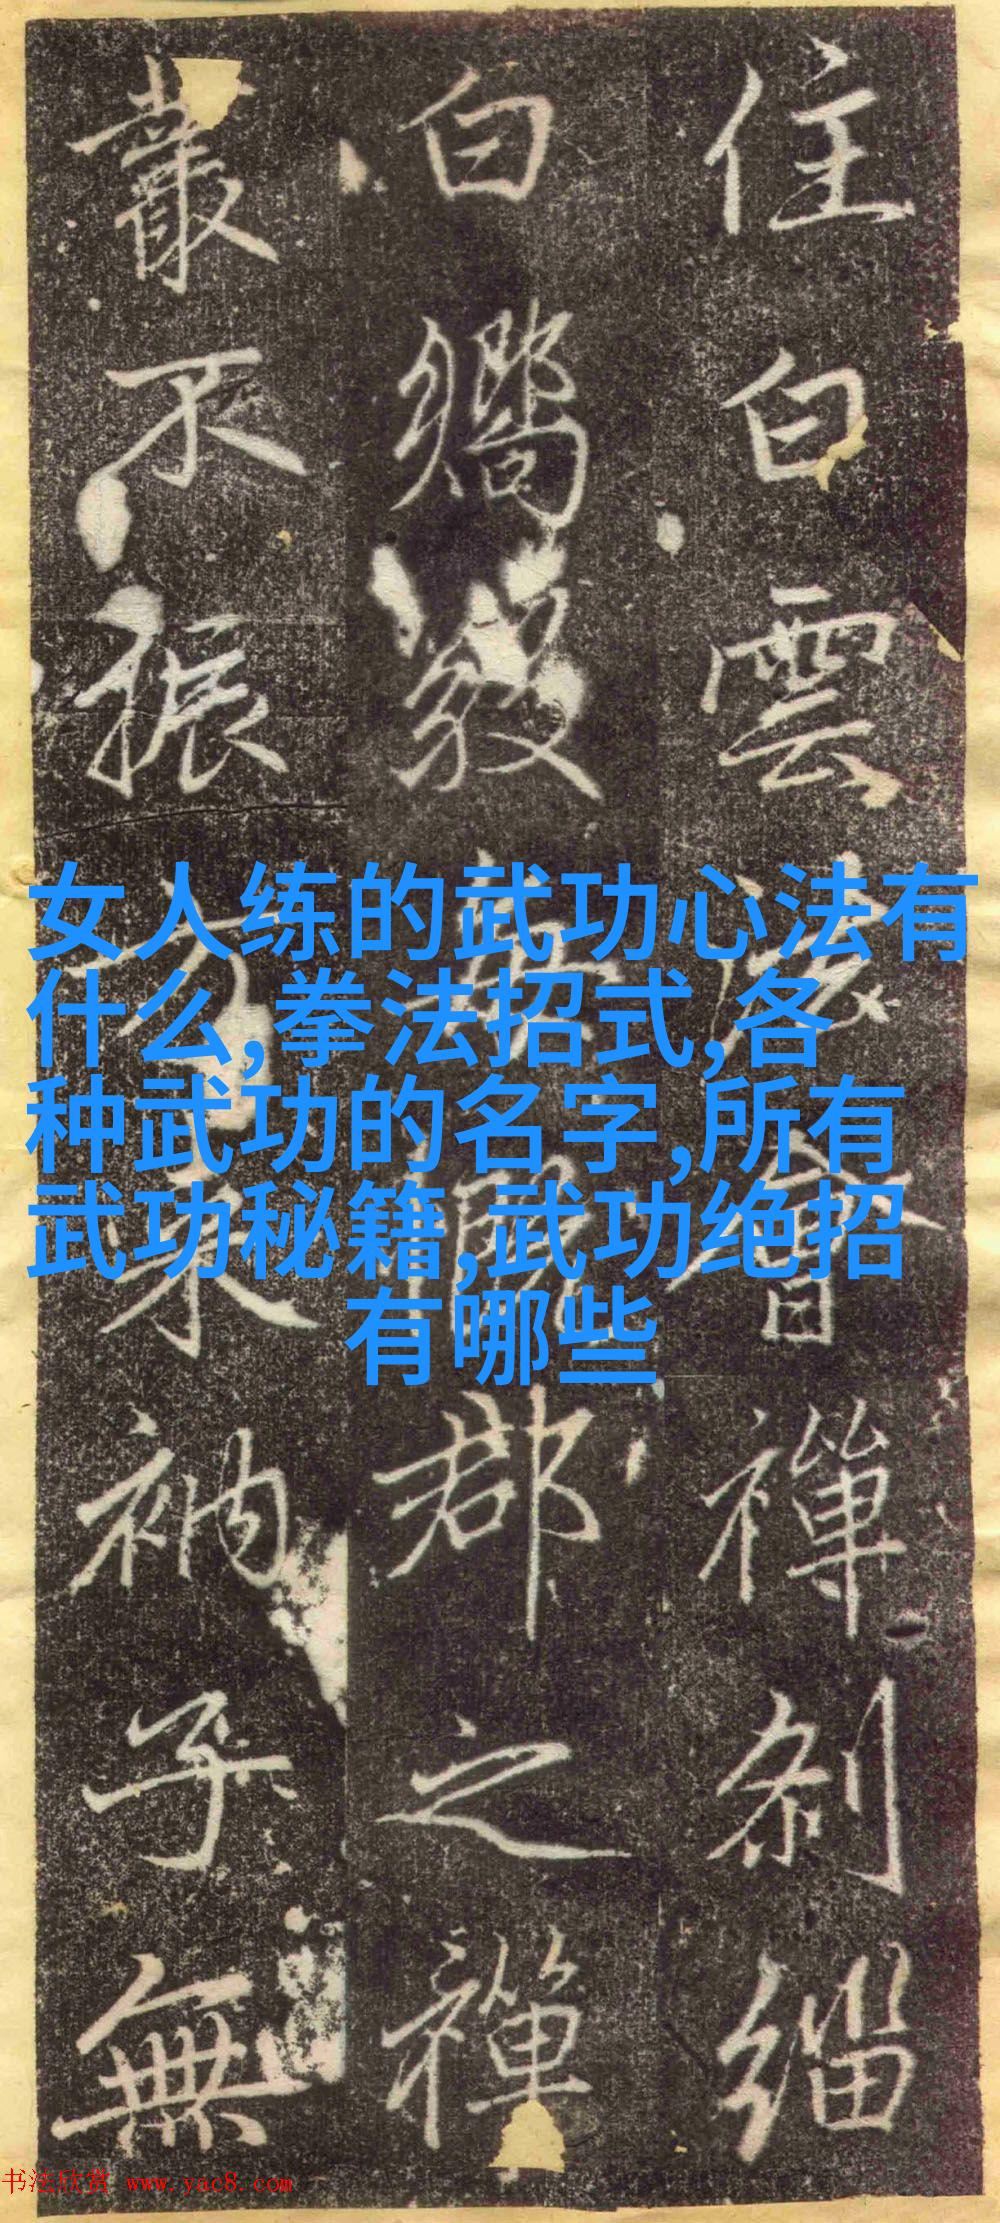 住白雲會禪剎緇
白郡之禪
叢不振方來衲子無
女人练的武功心法有
什么,拳法招式,各
种武功的名字,所有
武功秘籍,武功绝招
有哪些
书法欣赏 www.yac8.com